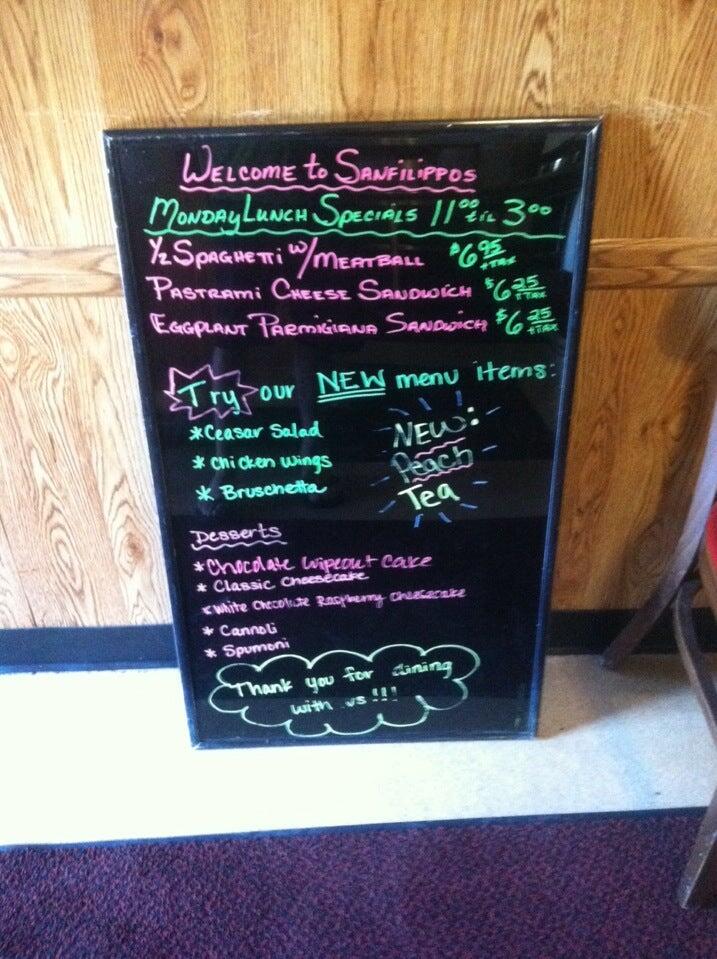 Welcome to Sanfilippos
Monday Lunch Specials 11:00 til 3:00
½ Spaghetti w/Meatball $6.95 +tax
Pastrami Cheese Sandwich $6.25 +tax
Eggplant Parmigiana Sandwich $6.25 +tax
Try our NEW menu items:
*Ceasar Salad
*Chicken Wings
*Bruschetta
NEW:
Peach
Tea
Desserts
*Chocolate Wipeout Cake
*Classic Cheesecake
*White Chocolate Raspberry Cheesecake
*Cannoli
*Spumoni
Thank you for dining
with us!!!